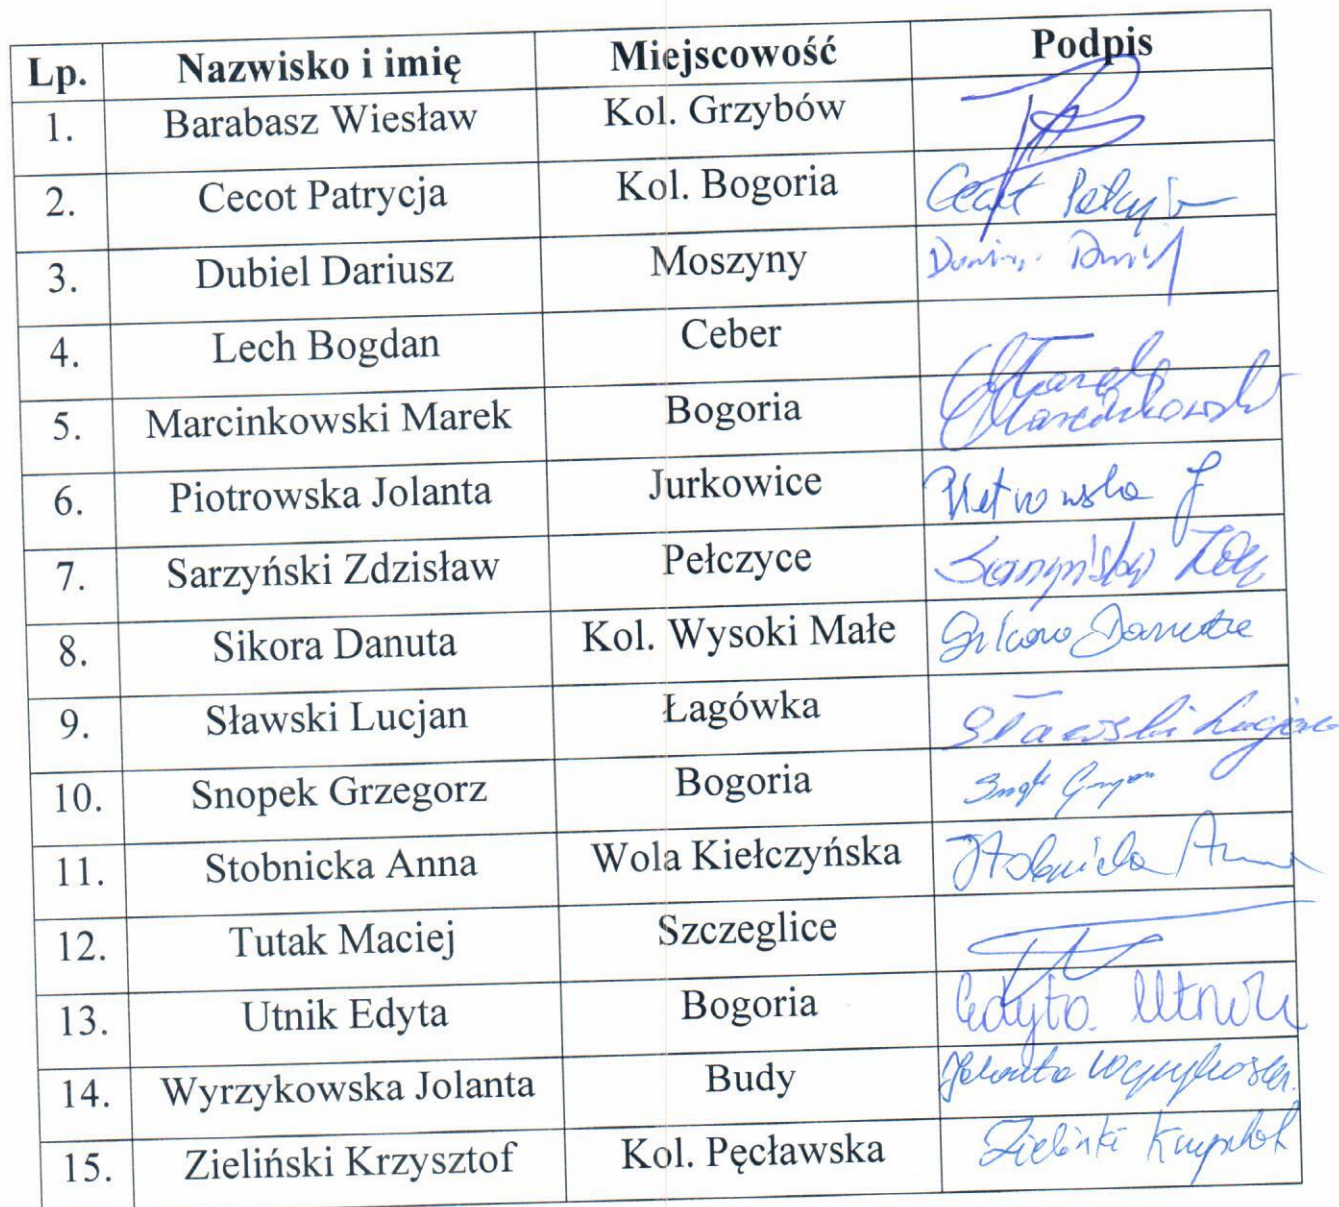 Lp. Nazwisko i imię Miejscowość Podpis
1. Barabasz Wiesław Kol. Grzybów
2. Cecot Patrycja Kol. Bogoria Cecot Patrycja
3. Dubiel Dariusz Moszyny
4. Lech Bogdan Ceber
5. Marcinkowski Marek Bogoria Marek Marcinkowski
6. Piotrowska Jolanta Jurkowice Piotrowska J
7. Sarzyński Zdzisław Pełczyce Sarzyński
8. Sikora Danuta Kol. Wysoki Małe Sikora Danuta
9. Sławski Lucjan Łagówka Sławski Lucjan
10. Snopek Grzegorz Bogoria
11. Stobnicka Anna Wola Kiełczyńska Stobnicka Anna
12. Tutak Maciej Szczeglice
13. Utnik Edyta Bogoria Edyta Utnik
14. Wyrzykowska Jolanta Budy Jolanta Wyrzykowska
15. Zieliński Krzysztof Kol. Pęcławska Zieliński Krzysztof